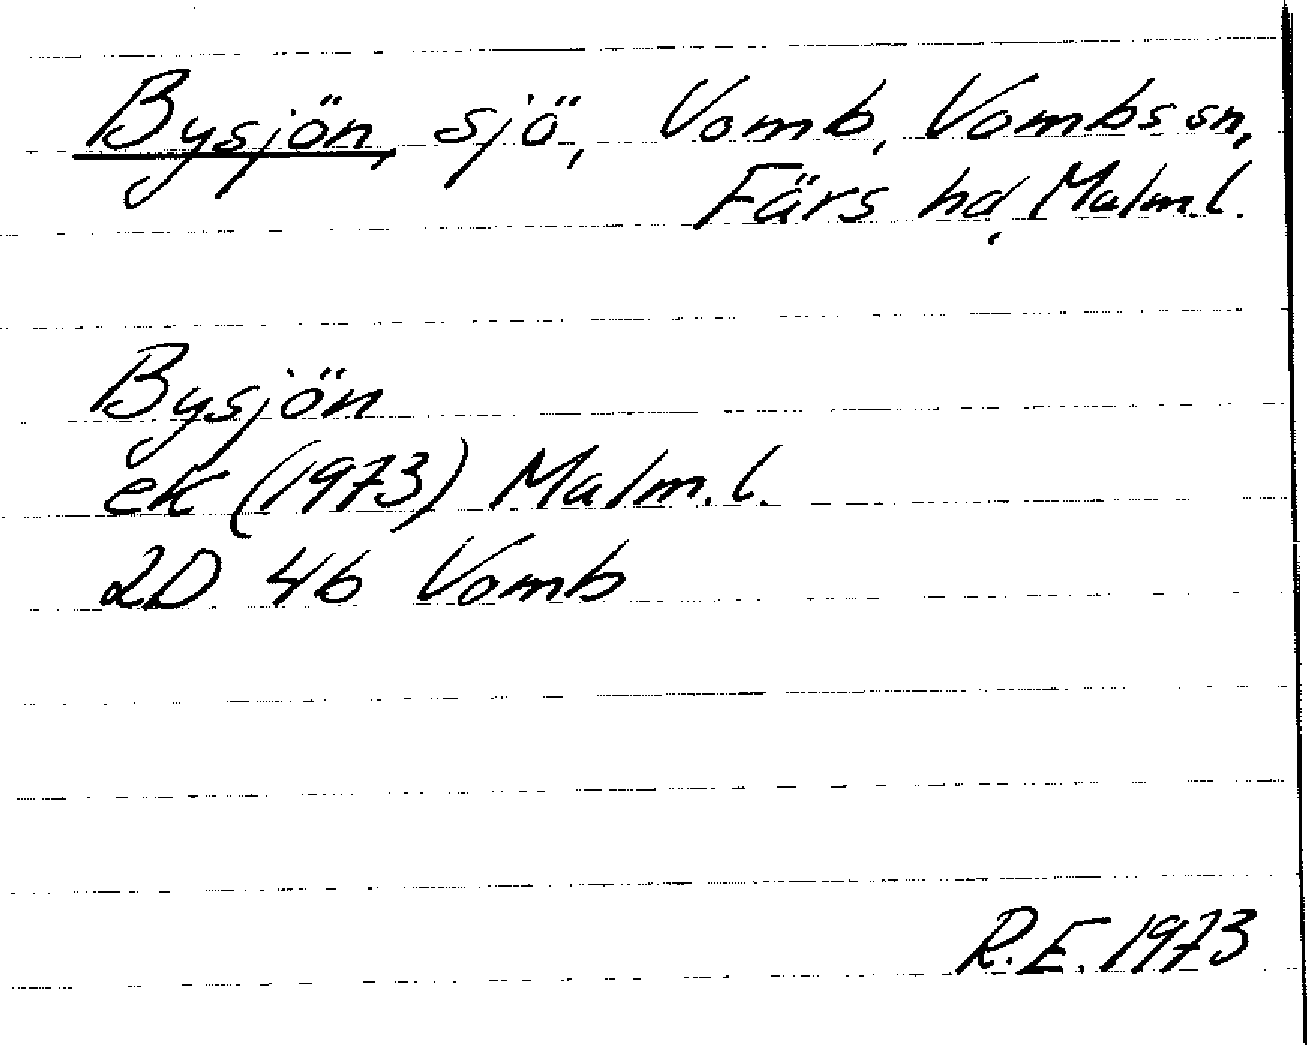 Bysjön, sjö, Vomb, Vombs sn,
Färs hd, Malm.l.
Bysjön
ek (1973) Malm.l.
2D 4b Vomb
R.E. 1973